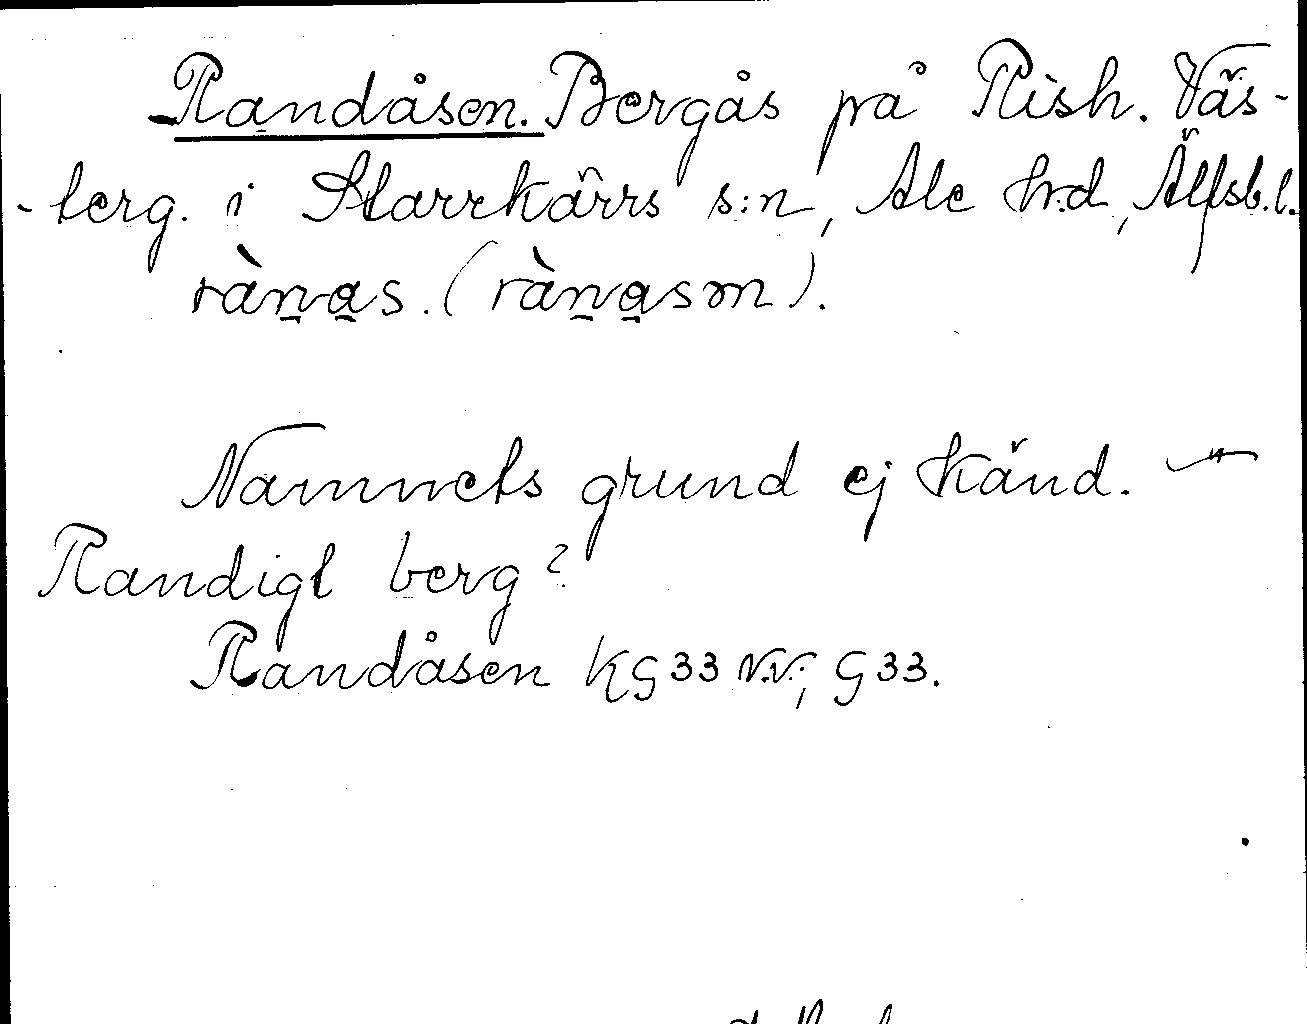 Randåsen. Bergås på Rish. Väs-
-terg. i Starrkärrs s:n, Ale h:d, Älfsb.l.
ràn̠a̠s. (ràn̠a̠sm).
Namnets grund ej känd. —"—
Randigt berg?
Randåsen KG33 N.V.; G33.